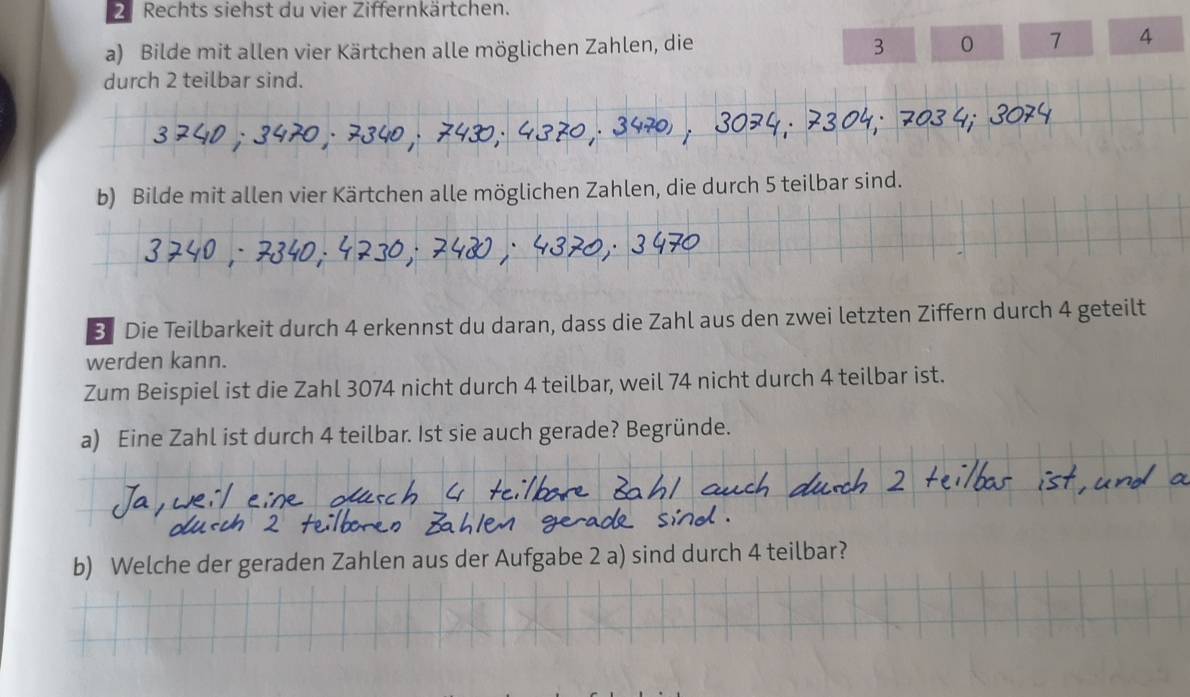 2 Rechts siehst du vier Ziffernkärtchen.
a) Bilde mit allen vier Kärtchen alle möglichen Zahlen, die
3 0 7 4
durch 2 teilbar sind.
3740 ; 3470 ; 7340 ; 7430 ; 4370 ; 3470 ; 3074 ; 7304 ; 7034 ; 3074
b) Bilde mit allen vier Kärtchen alle möglichen Zahlen, die durch 5 teilbar sind.
3740 ; 7340 ; 4730 ; 7430 ; 4370 ; 3470
3 Die Teilbarkeit durch 4 erkennst du daran, dass die Zahl aus den zwei letzten Ziffern durch 4 geteilt
werden kann.
Zum Beispiel ist die Zahl 3074 nicht durch 4 teilbar, weil 74 nicht durch 4 teilbar ist.
a) Eine Zahl ist durch 4 teilbar. Ist sie auch gerade? Begründe.
Ja, weil eine durch 4 teilbare Zahl auch durch 2 teilbar ist, und
durch 2 teilbaren Zahlen gerade sind.
b) Welche der geraden Zahlen aus der Aufgabe 2 a) sind durch 4 teilbar?